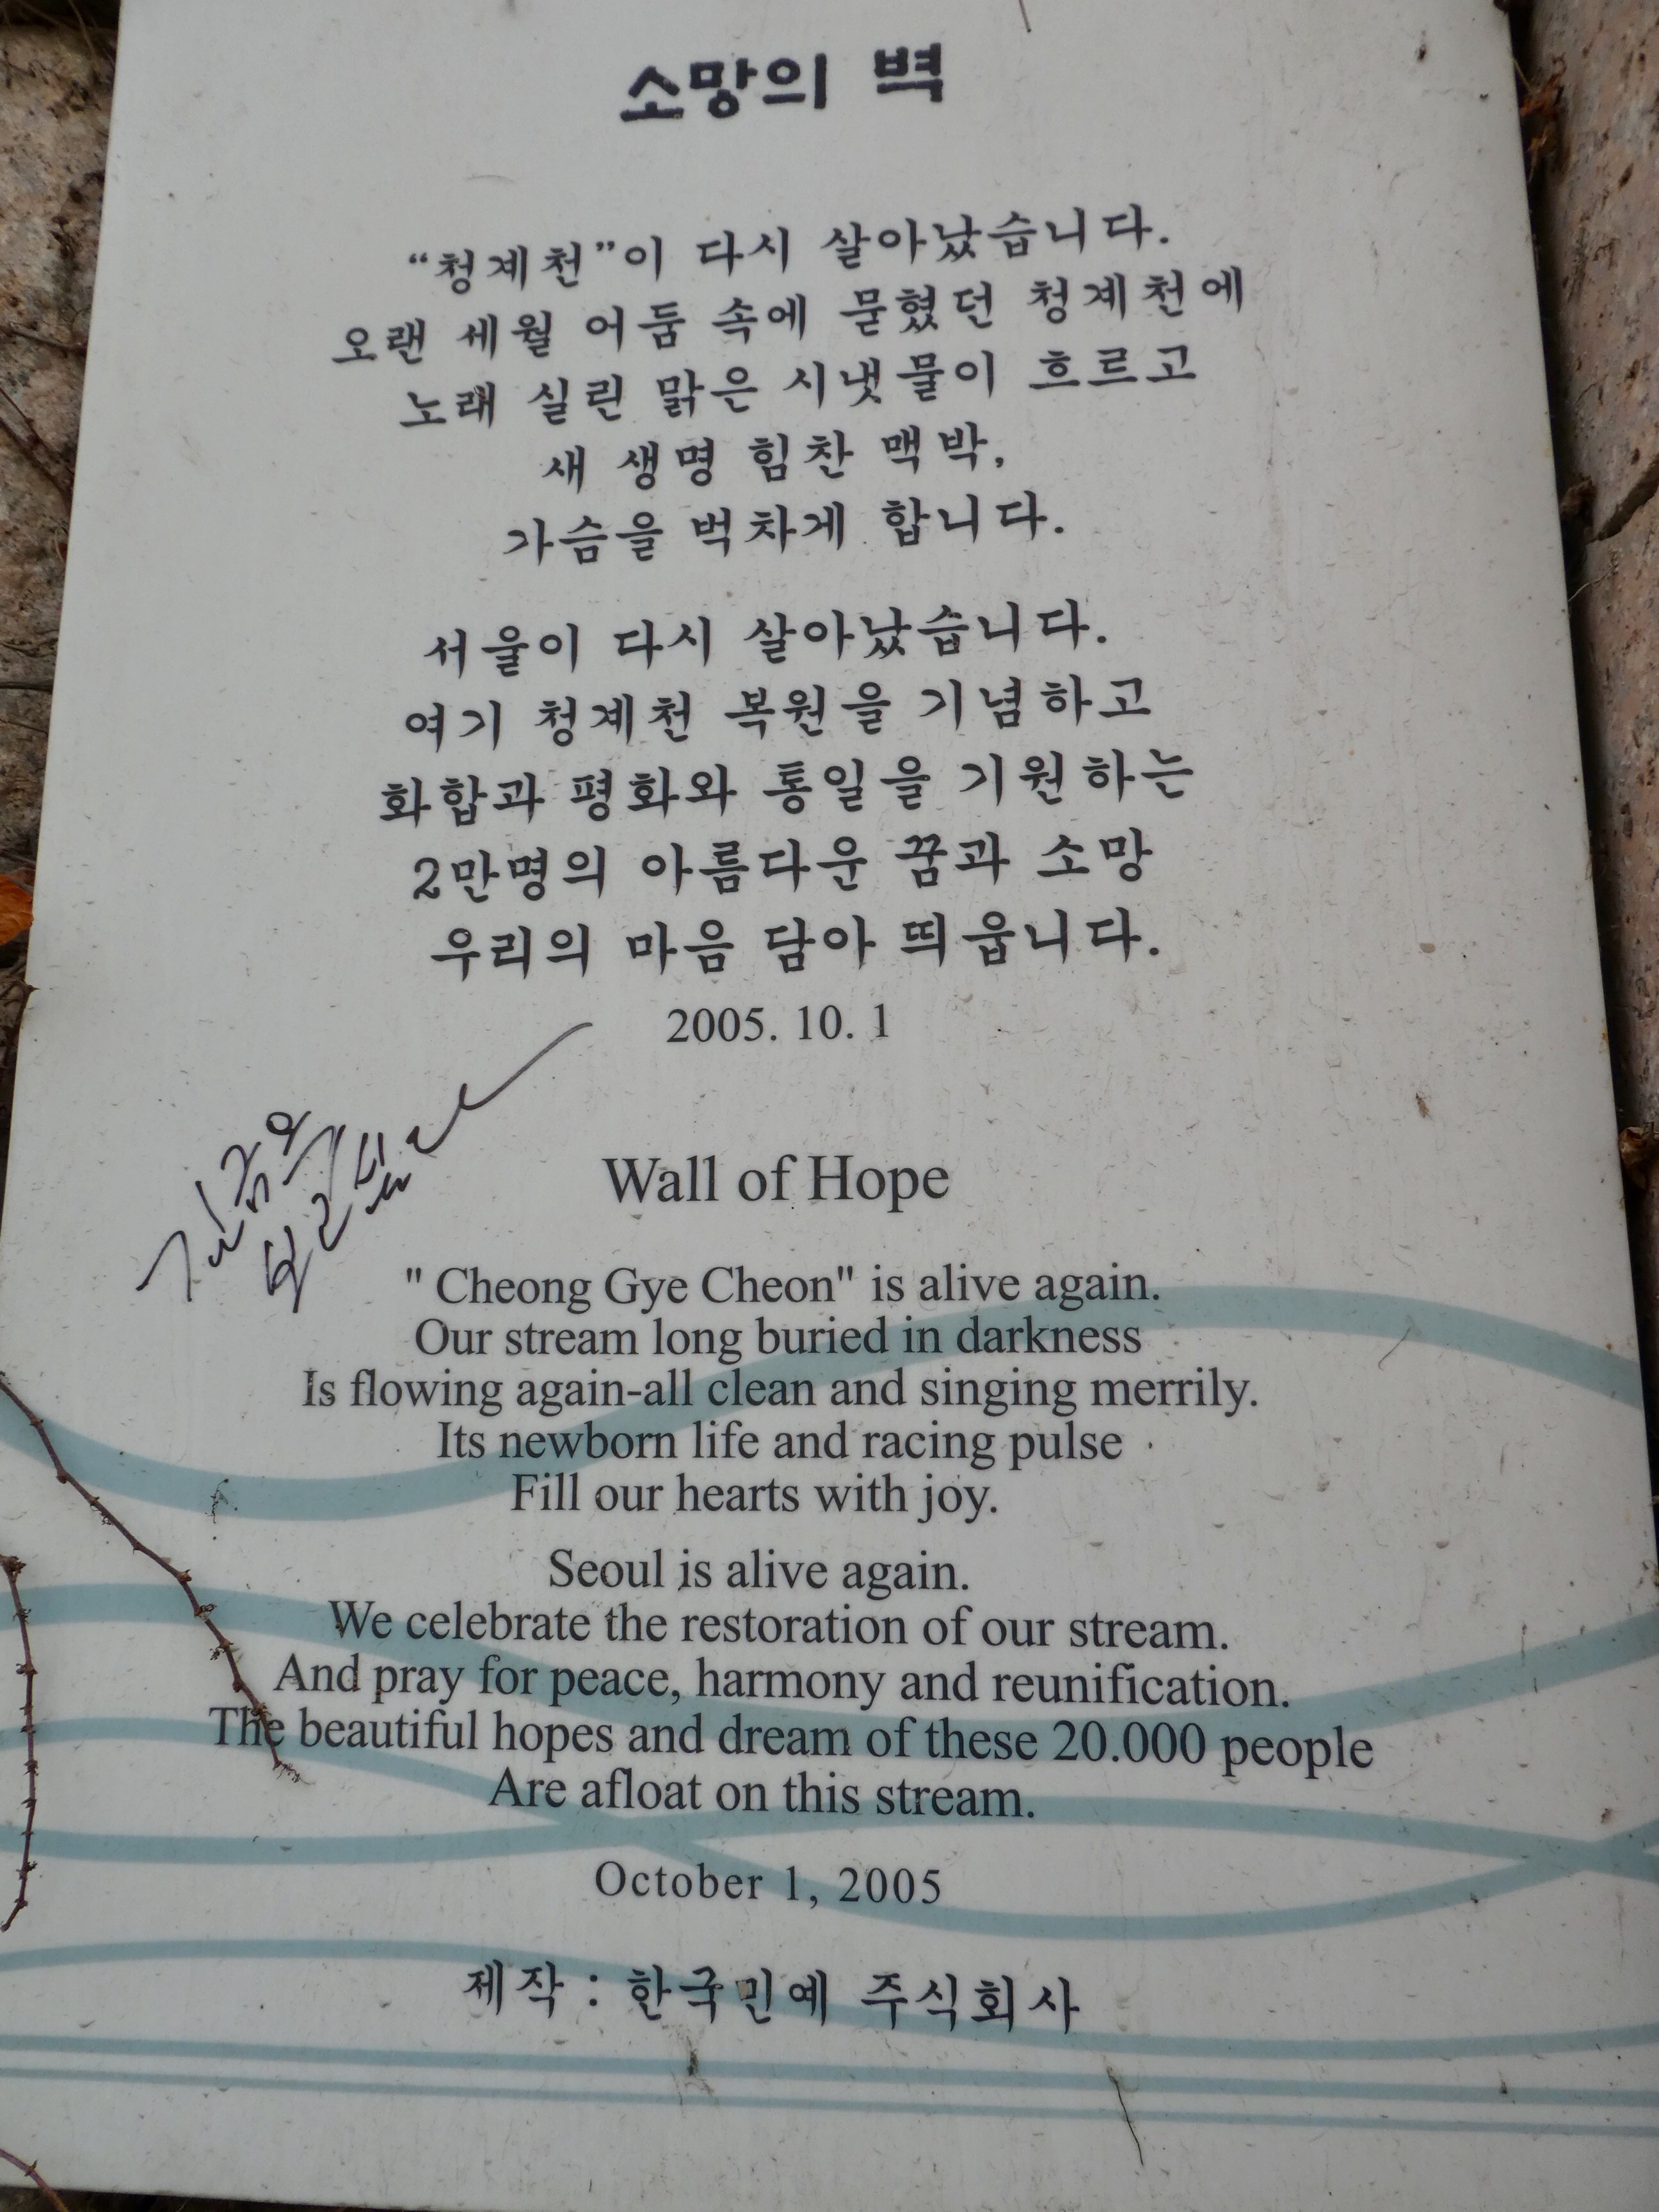 소망의 벽
“청계천”이 다시 살아났습니다.
오랜 세월 어둠 속에 묻혔던 청계천에
노래 실린 맑은 시냇물이 흐르고
새 생명 힘찬 맥박,
가슴을 벅차게 합니다.
서울이 다시 살아났습니다.
여기 청계천 복원을 기념하고
화합과 평화와 통일을 기원하는
2만명의 아름다운 꿈과 소망
우리의 마음 담아 띄웁니다.
2005. 10. 1
Wall of Hope
" Cheong Gye Cheon" is alive again.
Our stream long buried in darkness
Is flowing again-all clean and singing merrily.
Its newborn life and racing pulse
Fill our hearts with joy.
Seoul is alive again.
We celebrate the restoration of our stream.
And pray for peace, harmony and reunification.
The beautiful hopes and dream of these 20.000 people
Are afloat on this stream.
October 1, 2005
제작 : 한국민예 주식회사